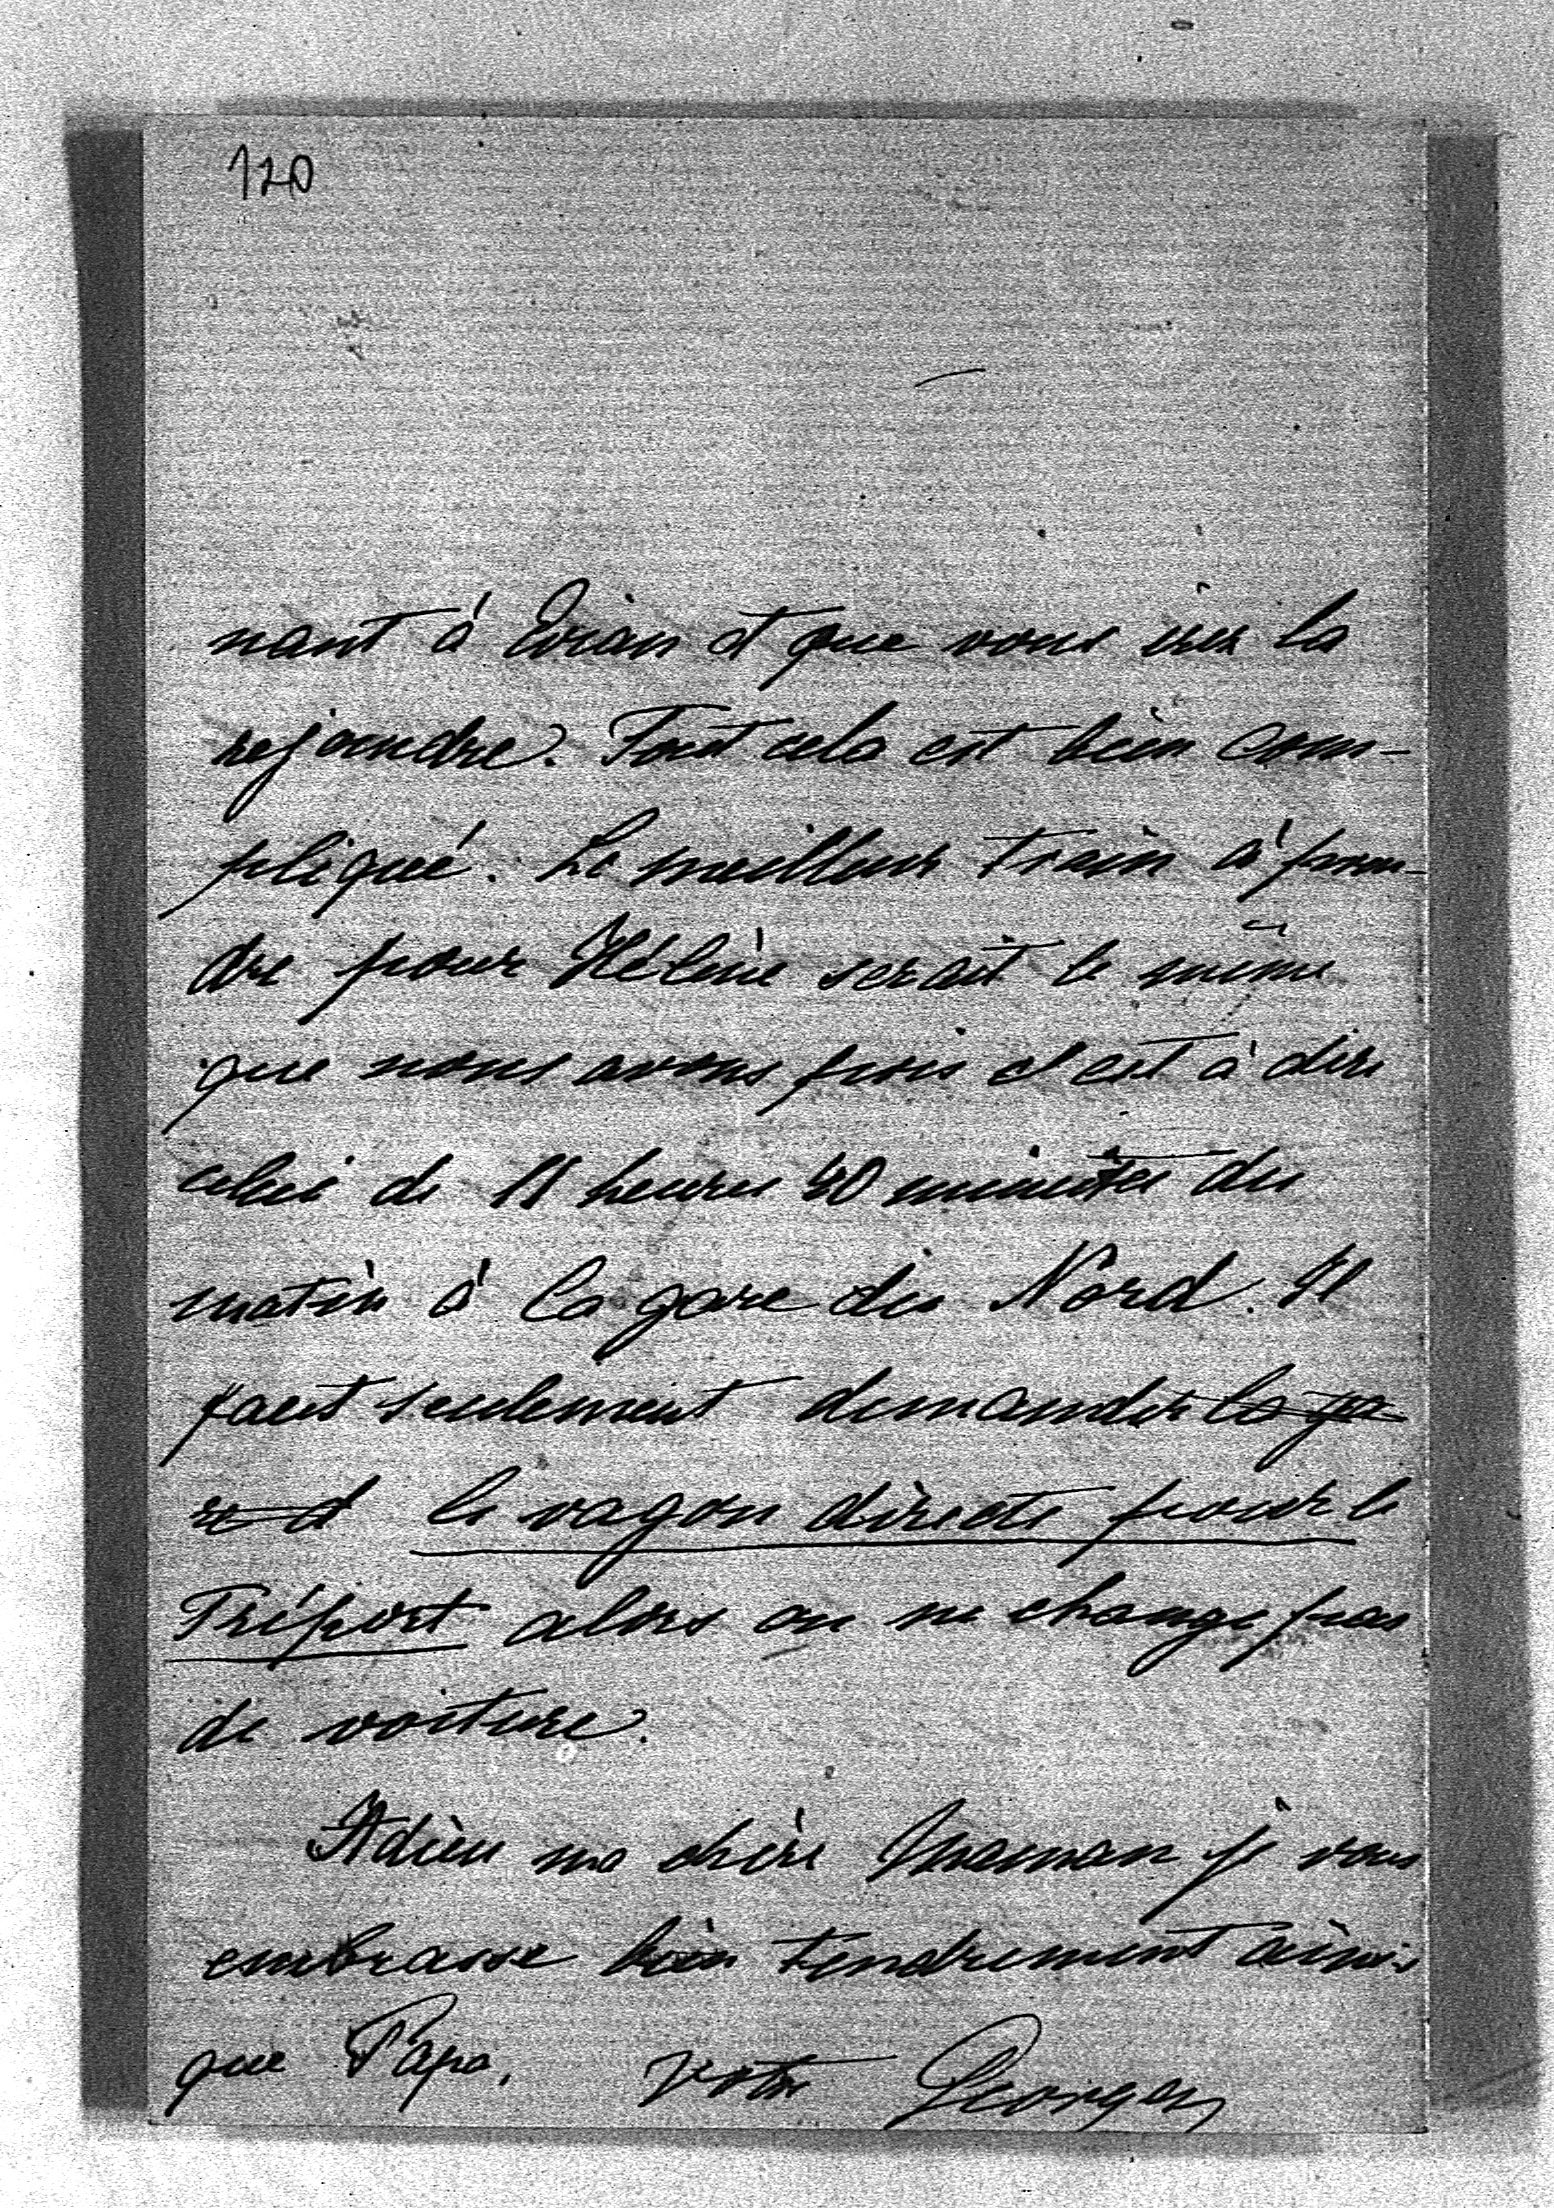 120
nant à Evian et que vous irez la
rejoindre. Tout cela est bien com-
pliqué. Le meilleur train à pren-
dre pour Hélène serait le même
que nous avons pris c'est à dire
celui de 11 heures 40 minutes du
matin à la gare du Nord. Il
faut seulement demander la ga
le vagon directe pour le
Tréport alors on ne change pas
de voiture.
Adieu ma chère Maman je vous
embrasse bien tendrement ainsi
que Papa. Votre Georges